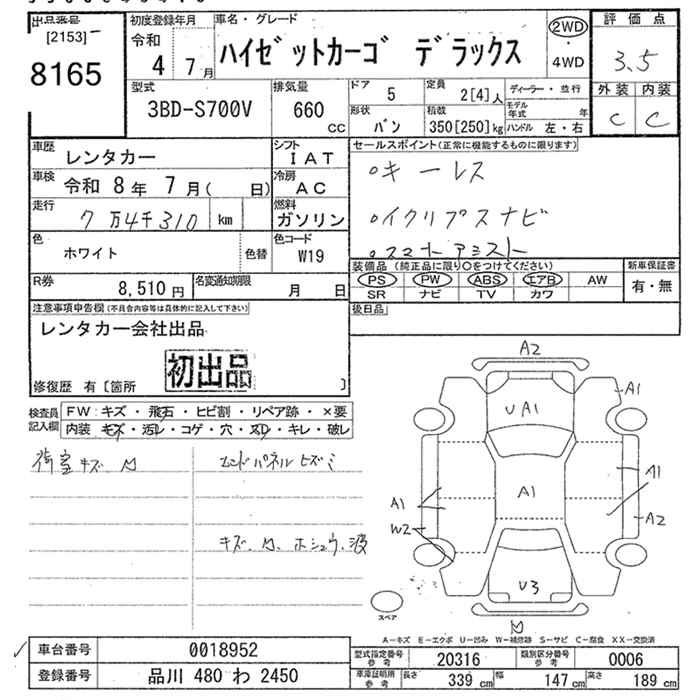 出品番号
[2153]
8165
初度登録年月
令和
4年7月
車名・グレード
ハイゼットカーゴ デラックス
2WD
・
4WD
評価点
3.5
外装 内装
C C
型式
3BD-S700V
排気量
660
CC
ドア
5
定員
2[4]人
ディーラー・並行
形状
バン
積載
350[250]kg
モデル年式 年
ハンドル 左・右
車歴
レンタカー
シフト
IAT
車検
令和 8年 7月( 日)
冷房
AC
走行
7万4千310 km
燃料
ガソリン
色
ホワイト
色替
色コード
W19
R券
8,510円
名変通知期限
月 日
セールスポイント(正常に機能するものに限ります)
○キーレス
○イクリプスナビ
○スマートアシスト
装備品(純正品に限り○をつけてください)
PS PW ABS エアB AW
SR ナビ TV カワ
新車保証書
有・無
後日品
注意事項申告欄(不具合内容等は具体的に記入して下さい)
レンタカー会社出品
初出品
修復歴 有〔箇所 〕
検査員記入欄
FW:キズ・飛石・ヒビ割・リペア跡・×要
内装:キズ・汚レ・コゲ・穴・スレ・キレ・破レ
荷室キズ、凹
エンドパネルヒズミ
キズ、凹、ホシュウ、波
A2
A1
UA1
A1
A1
A1
W2
A2
U3
W
スペア
A-キズ E-エクボ U-凹み W-補修跡 S-サビ C-腐食 XX-交換済
車台番号
0018952
登録番号
品川 480 わ 2450
型式指定番号
参考
20316
類別区分番号
参考
0006
車庫証明所
参考
長さ
339 cm
幅
147 cm
高さ
189 cm